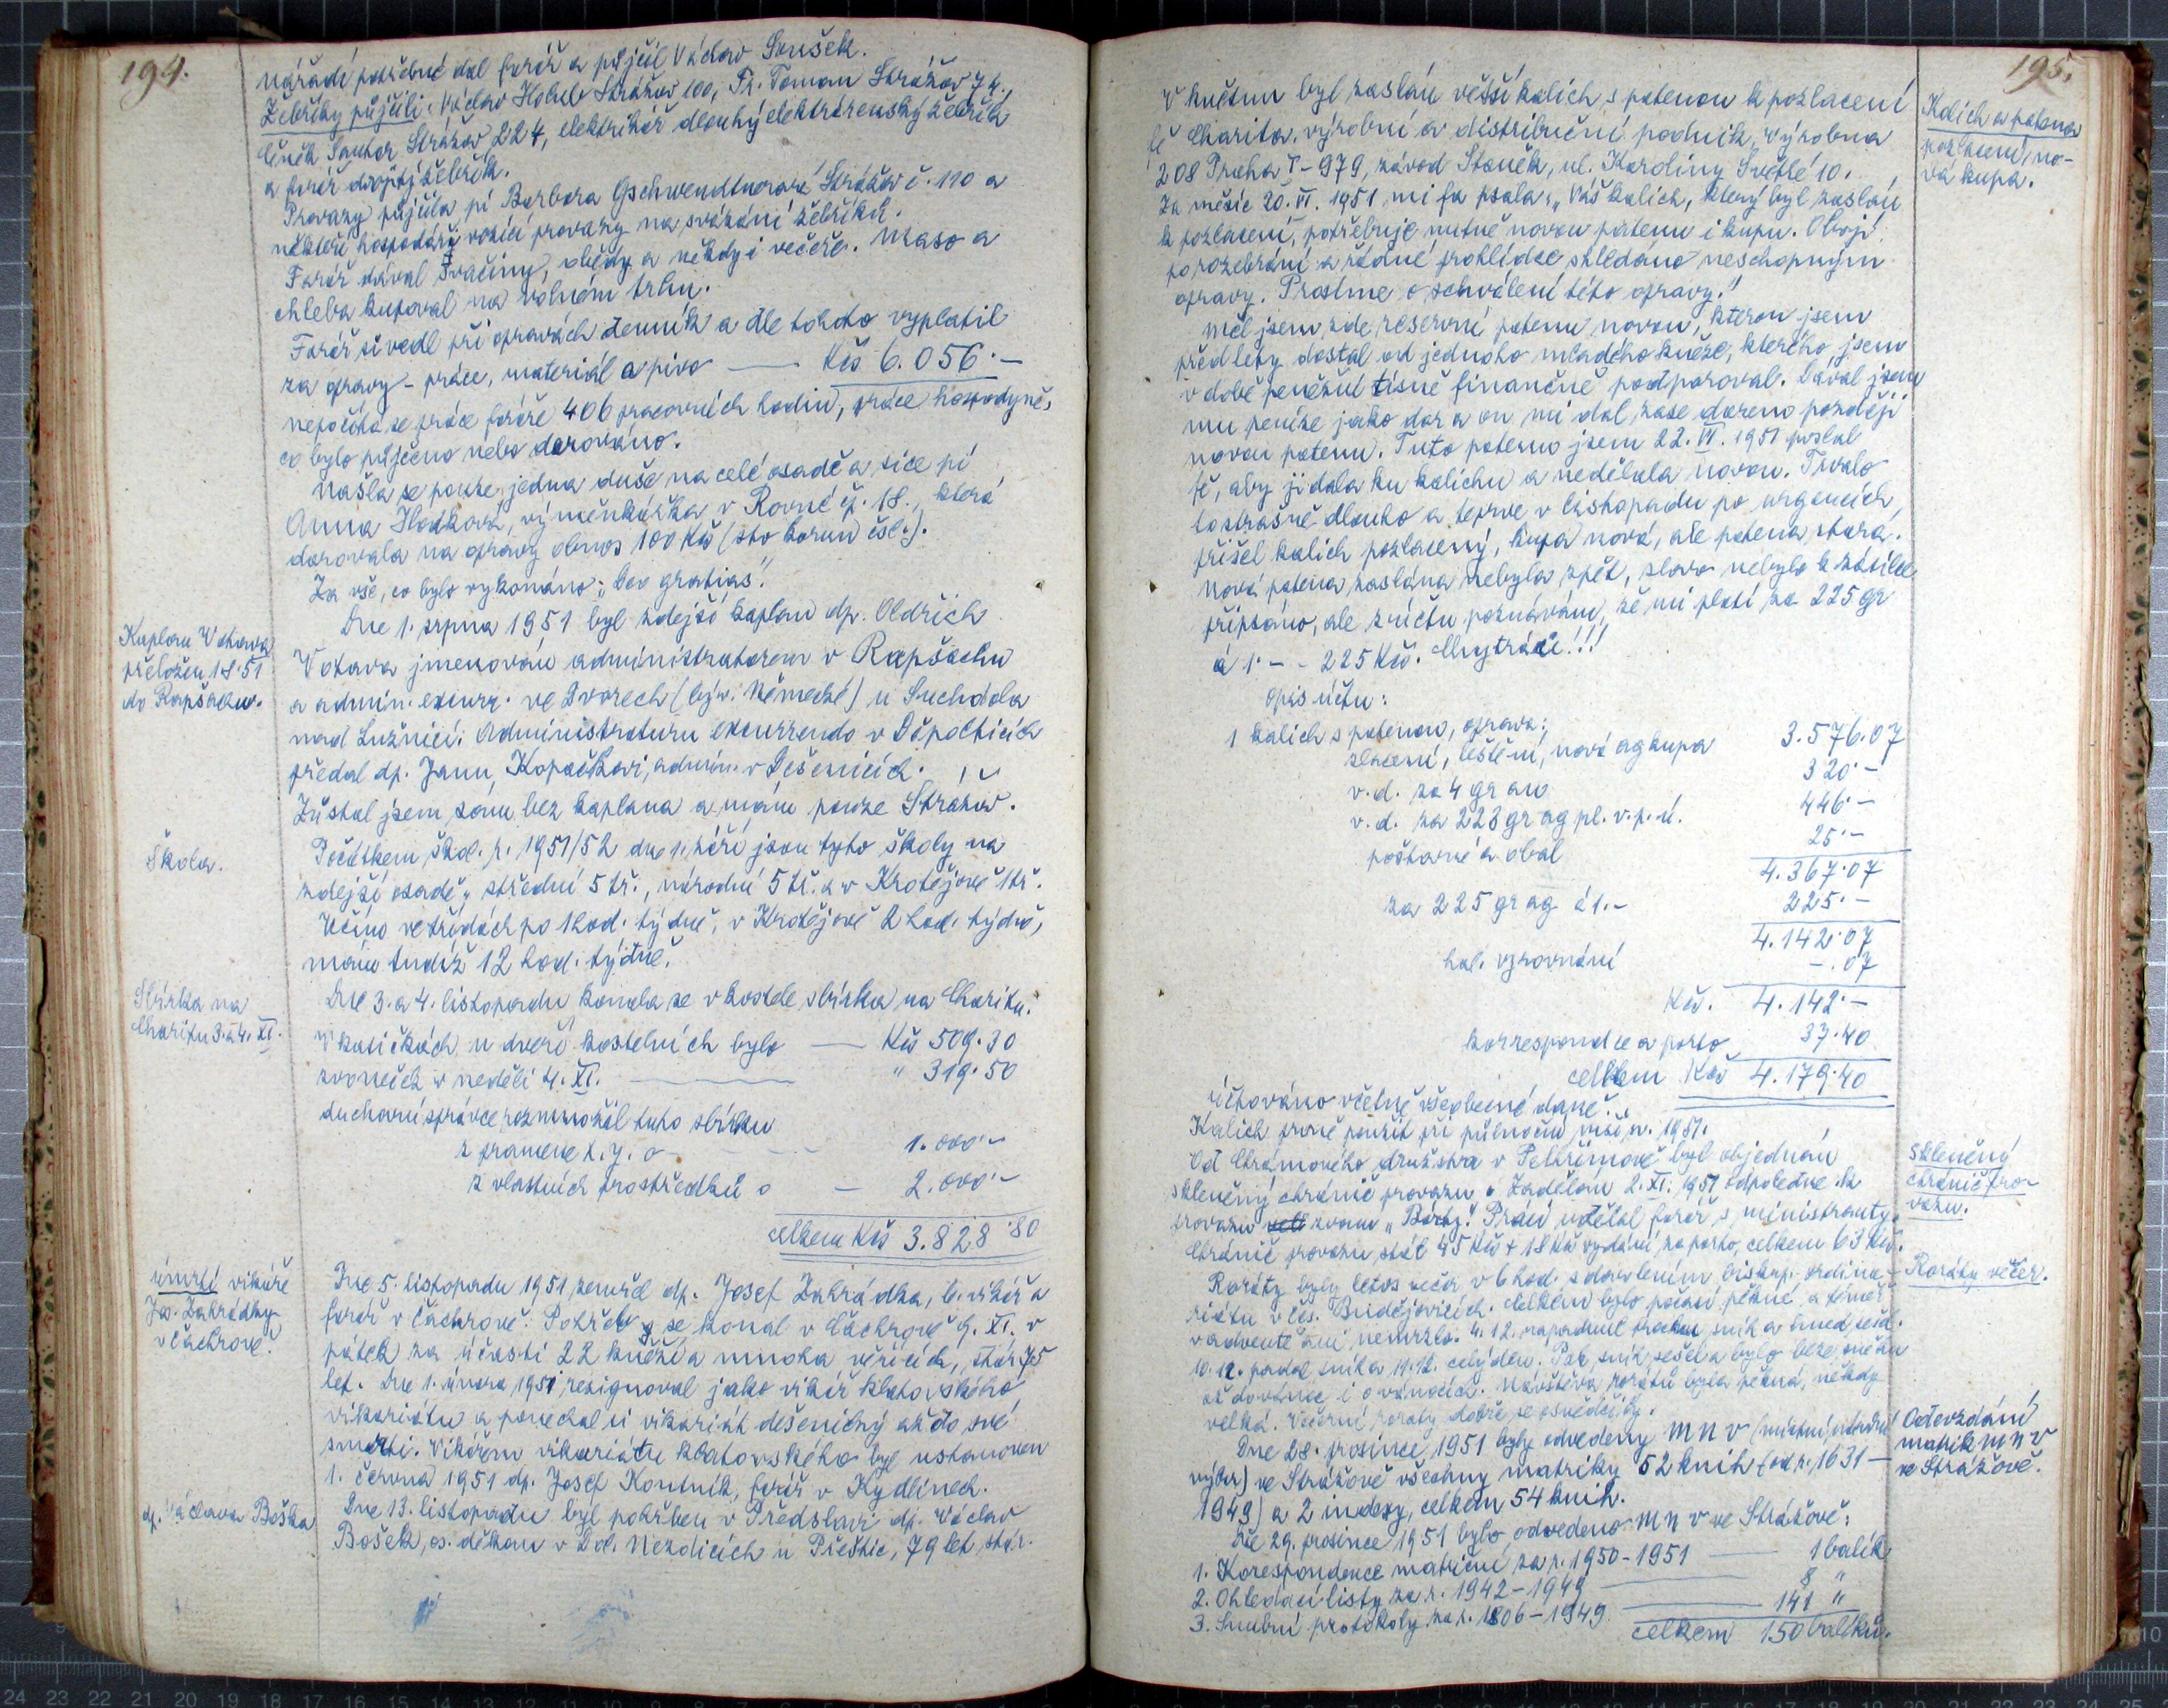 194.
nářadí potřebné dal farář a půjčil Václav Soušek.
Žebříky půjčili: Václav Holub Strážov 100, Fr. Toman Strážov 74.,
Čeněk Šautor Strážov 224, elektrikář dlouhý elektrárenský žebřík
a farář dvojitý žebřík.
Provazy půjčila pí Barbora Gschwendtnerová Strážov č. 110 a
někteří hospodáři vozící provazy na svázání žebříků.
Farář dával svačiny, obědy a někdy i večeře. Maso a
chleba kupoval na volném trhu.
Farář si vedl při opravách denník a dle tohoto vyplatil
za opravy - práce, materiál a pivo — Kčs 6.056.—
nepočítá se práce faráře 406 pracovních hodin, práce hospodyně,
co bylo půjčeno nebo darováno.
Našla se pouze jedna duše na celé osadě a sice pí
Anna Hladková, výměnkářka v Rovné čp. 18., která
darovala na opravy obnos 100 Kčs (sto korun čsl.).
Za vše, co bylo vykonáno: „Deo gratias!"
Kaplan Votava
přeložen 1.8.51
do Rapšachu.
Dne 1. srpna 1951 byl zdejší kaplan dp. Oldřich
Votava jmenován administratorem v Rapšachu
a admin. excurr. ve Dvorech (býv. Německé) u Suchdola
nad Lužnicí. Administraturu excurrendo v Děpolticích
předal dp. Janu Kopačkovi, admin. v Dešenicích.
Zůstal jsem sám bez kaplana a mám pouze Strážov.
Škola.
Počátkem škol. r. 1951/52 dne 1. září jsou tyto školy na
zdejší osadě: střední 5 tř., národní 5 tř. a v Krotějově 1 tř.
Učíno ve třídách po 1 hod. týdně, v Krotějově 2 hod. týdně,
mám tudíž 12 hod. týdně.
Sbírka na
Charitu 3. a 4. XI.
Dne 3. a 4. listopadu konala se v kostele sbírka na Charitu.
V kasičkách u dveří kostelních bylo — Kčs 509.30
zvoneček v neděli 4. XI. — " 319.50
duchovní správce rozmnožil tuto sbírku
z pramene x. y. o — 1.000.—
z vlastních prostředků o — 2.000.—
celkem Kčs 3.828.80
úmrtí vikáře
Jos. Zahrádky
v Čachrově.
Dne 5. listopadu 1951 zemřel dp. Josef Zahrádka, b. vikář a
farář v Čachrově. Pohřeb se konal v Čachrově 9. XI. v
pátek za účasti 22 kněží a mnoha věřících, stár 75
let. Dne 1. února 1951 resignoval jako vikář klatovského
vikariátu a ponechal si vikariát dešenický až do své
smrti. Vikářem vikariátu klatovského byl ustanoven
1. června 1951 dp. Josef Kontník, farář v Kydlinech.
dp. Václava Boška
Dne 13. listopadu byl pohřben v Předslavi dp. Václav
Bošek, os. děkan v Dol. Nezdicích u Přeštic, 79 let stár.
195.
Kalich a patena
pozlacení, no-
vá kupa.
V květnu byl zaslán větší kalich s patenou k pozlacení
fě Charita, výrobní a distribuční podnik, výrobna
208 Praha I - 979, závod Staněk, ul. Karoliny Světlé 10.
Za měsíc 20. VI. 1951 mi fa psala: „Váš kalich, který byl zaslán
k pozlacení, potřebuje nutně novou patenu i kupu. Obojí
po rozebrání a řádné prohlídce shledáno neschopným
opravy. Prosíme o schválení této opravy."
Měl jsem zde reservní patenu novou, kterou jsem
před lety dostal od jednoho mladého kněze, kterého jsem
v době peněžní tísně finančně podporoval. Dával jsem
mu peníze jako dar a on mi dal zase darem později
novou patenu. Tuto patenu jsem 22. VI. 1951 poslal
fě, aby ji dala ku kalichu a nedělala novou. Trvalo
to strašně dlouho a teprve v listopadu po urgencích,
přišel kalich pozlacený, kupa nová, ale patena stará.
Nová patena zaslána nebyla zpět, slovo nebylo k zásilce
připsáno, ale z účtu poznávám, že mi platí za 225 gr
á 1.— - 225 Kčs. Chytráci!!!
Opis účtu:
1 kalich s patenou, oprava:
zlacení, leštění, nová ag kupa 3.576.07
v. d. za 4 gr au 320.—
v. d. za 223 gr ag pl. v. p. ú. 446.—
poštovné a obal 25.—
4.367.07
za 225 gr ag á 1.— 225.—
4.142.07
hal. vyrovnání —.07
Kčs. 4.142.—
korrespondce a porto 37.40
celkem Kčs 4.179.40
účtováno včetně všeobecné daně.
Kalich prvně použit při půlnoční mši sv. 1951.
Skleněný
chránič pro-
vazu.
Od Chrámového družstva v Pelhřimově byl objednán
skleněný chránič provazu. Zadělán 2. XI. 1951 odpoledne k
provazu zvonu „Bárty". Práci udělal farář s ministranty.
Chránič provazu stál 45 Kčs + 18 Kčs vydání za porto, celkem 63 Kčs.
Roráty večer.
Roráty byly letos večer v 6 hod. s dovolením biskup. ordina-
riátu v Čes. Budějovicích. Celkem bylo počasí pěkné a téměř
v adventě ani nemrzlo. 4. 12. napadnul sníh a hned sešel.
10. 12. padal sníh a 11. 12. celý den. Pak sníh sešel a bylo beze sněhu
až do vánoc i o vánocích. Návštěva rorátů byla pěkná, někdy
velká. Večerní roráty dobře se osvědčily.
Odevzdání
matrik MNV
ve Strážově.
Dne 28. prosince 1951 byly odvedeny MNV (místní národní
výbor) ve Strážově všechny matriky 52 knih (od r. 1631 -
1949) a 2 indexy, celkem 54 knih.
Dne 29. prosince 1951 bylo odvedeno MNV ve Strážově:
1. Korespondence matriční za r. 1950 - 1951 — 1 balík
2. Ohledací listy za r. 1942 - 1949 — 8 "
3. Snubní protokoly za r. 1806 - 1949. — 141 "
celkem 150 balíků.